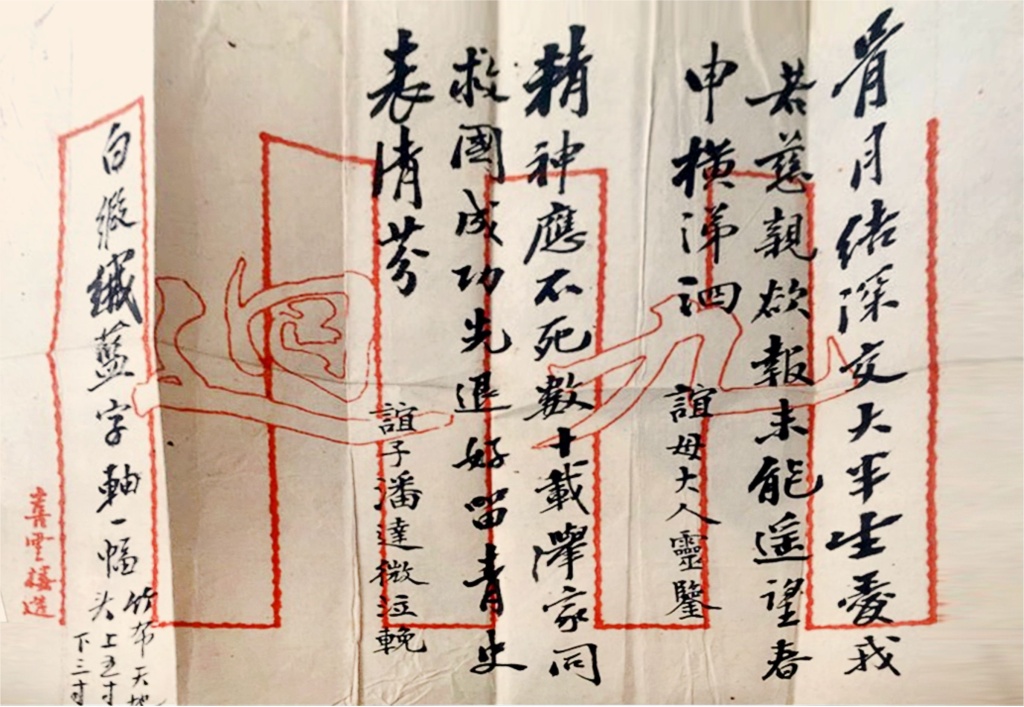 骨月结深交大半生愛我
若慈親欲報未能遥望春
申橫涕泗
誼母大人靈鑒
精神應不死數十載舉家同
救國成功先退好留青史
表清芬
誼子潘達微泣輓
白緞鐵藍字軸一幅
竹布天地
头上五寸
下三寸
喜雲樓造